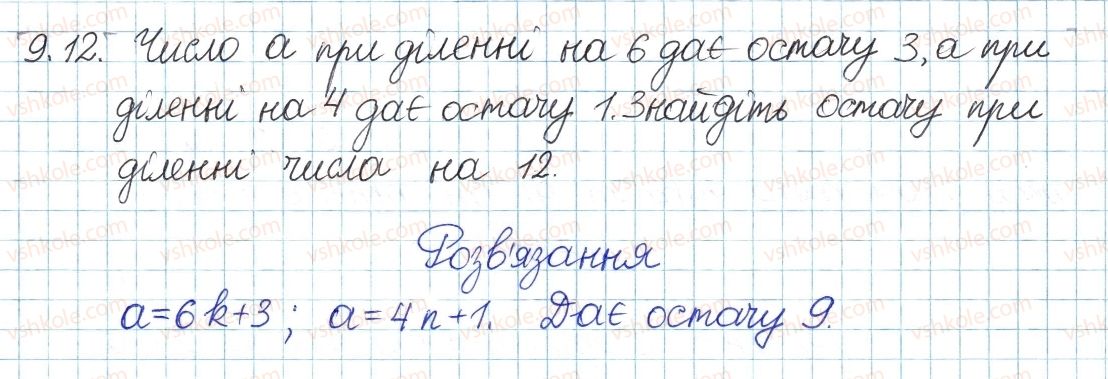 9.12. Число a при діленні на 6 дає остачу 3, а при
діленні на 4 дає остачу 1. Знайдіть остачу при
діленні числа на 12.
Розв'язання
a=6k+3; a=4n+1. Дає остачу 9.
vshkole.com